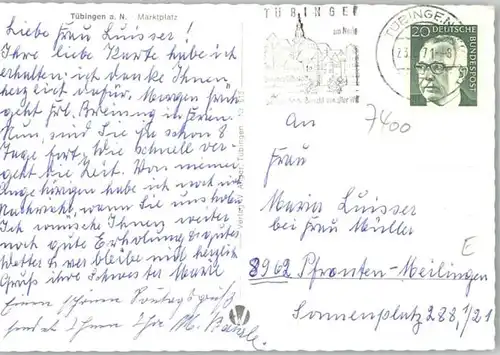 Tübingen a. N. Marktplatz
Liebe Frau Luisser!
Ihre liebe Karte habe ich
erhalten ich danke Ihnen
herzlich dafür. Morgen früh
geht Frl. Breining in
Nun, sind Sie schon 8
Tage fort, wie schnell ver-
geht die Zeit. Von meinen
Angehörigen habe ich noch
Nachricht, wann Sie uns
Ich wünsche Ihnen weiter
noch gute Erholung & gutes
Wetter & verbleibe mit herzlich
Gruß ihre Schwester Marie
Einen schönen Sonntagsgruß
Ihnen Ihre M.
TÜBINGEN
am Neckar
TÜBINGEN
20 DEUTSCHE
BUNDESPOST
An
7400
Frau
Maria Luisser
bei Frau Müller
E
8962 Pfronten-Meilingen
Sonnenplatz 288, 1/21